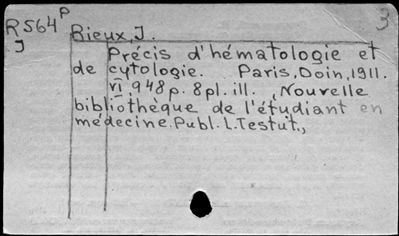 R564P
J
Rieux, J.
Précis d'hématologie et
de cytologie. Paris, Doin, 1911.
VI, 948 p. 8 pl. ill. , Nouvelle
bibliothèque de l'étudiant en
médecine. Publ. L. Testut.,